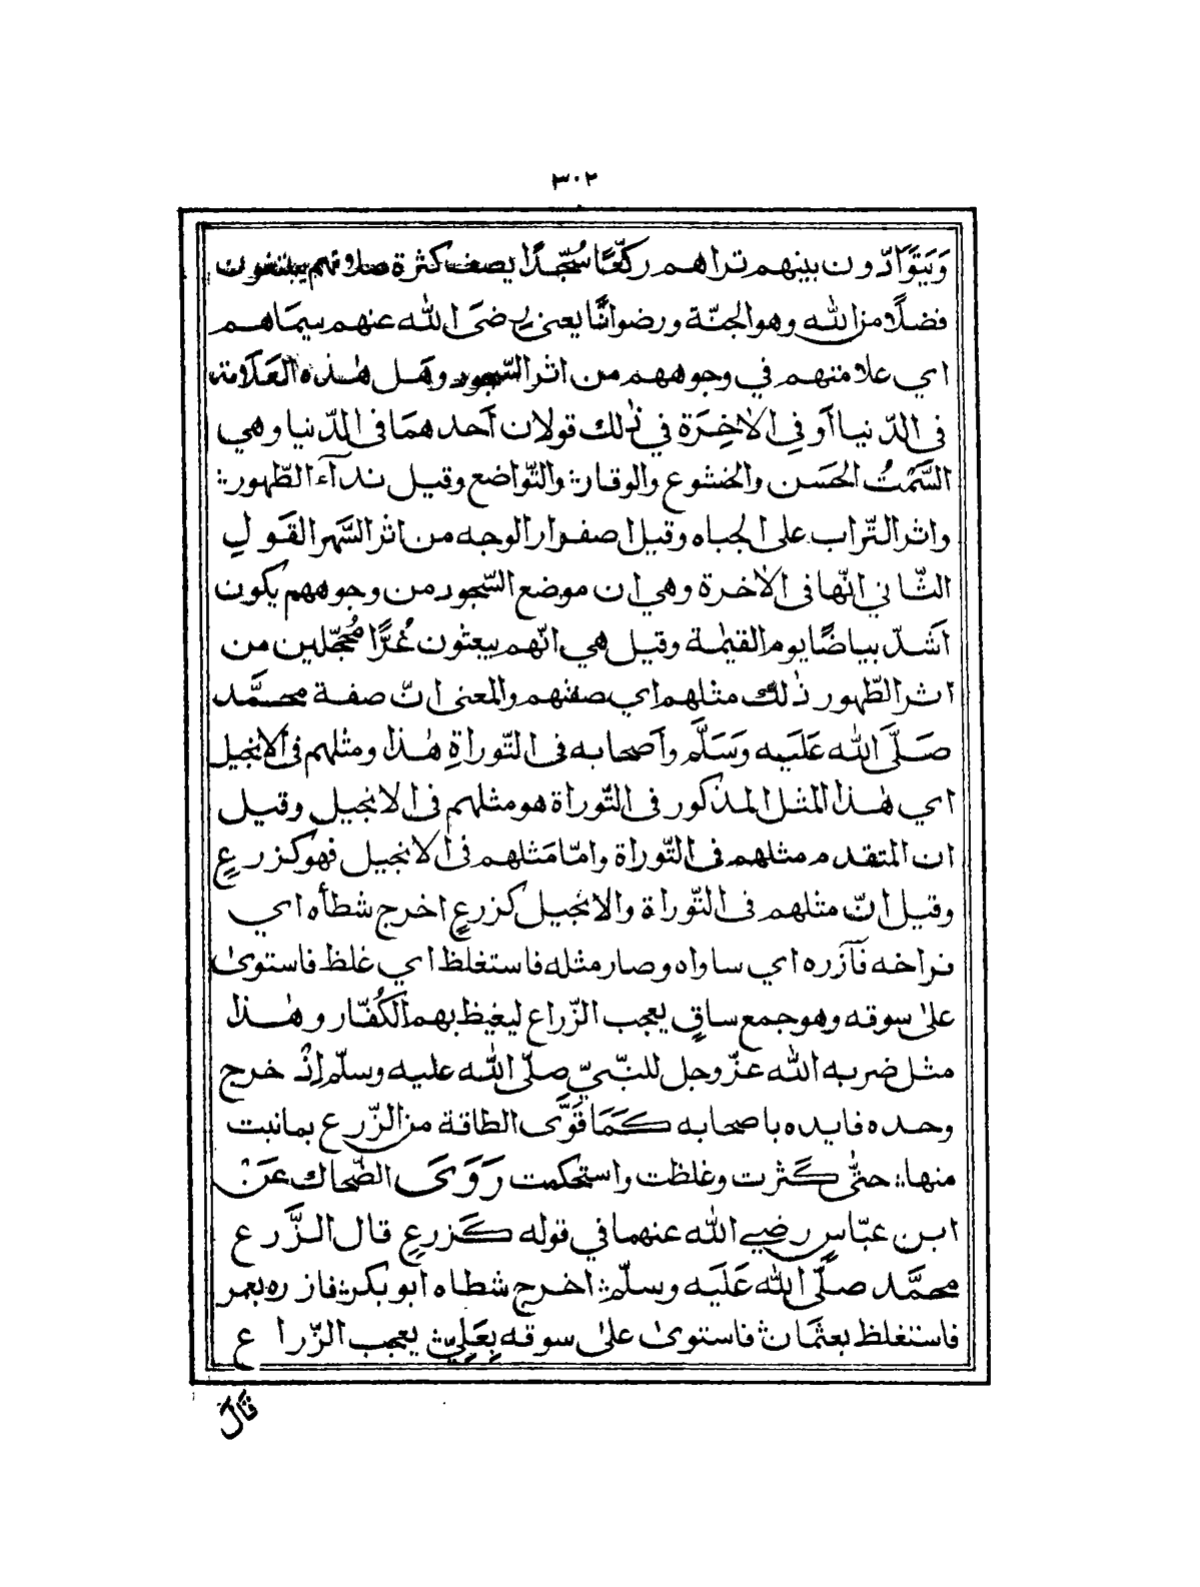 ٣٠٢
وَيَتَوَادّون بينهم تراهم ركّعًا سُجّدًا يصف كثرة صلاتهم يبتغون
فضلًا من الله وهو الجنّة ورضوانًا يعني رضَى الله عنهم سيماهم
اي علامتهم في وجوههم من اثر السّجود وهل هٰذه العَلَامة
في الدّنيا أو في الاٰخِرَة في ذٰلك قولان أحدهما في الدّنيا وهي
السَّمْتُ الحَسَن والخشوع والوقار والتّواضع وقيل ندآء الطّهور
واثر التّراب على الجباه وقيل اصفرار الوجه من اثر السَّهر القَولِ
الثّاني انّها في الاٰخرة وهي ان موضع السّجود من وجوههم يكون
اَشدّ بياضًا يوم القيٰمة وقيل هي انّهم يبعثون غُرًّا مُحجّلين من
اثر الطّهور ذٰلك مثلهم اي صفتهم والمعنى انّ صفة محمَّد
صَلَّى الله عَلَيه وَسَلَّم وأصحابه في التّوراةِ هٰذا ومثلهم في الانجيل
اي هٰذا المثل المذكور في التّوراة هو مثلهم في الانجيل وقيل
ان المتقدم مثلهم في التّوراة وامّا مَثلهم في الانجيل فهو كزرعٍ
وقيل انّ مثلهم في التّوراة والانجيل كزرعٍ اخرج شطأه اي
فراخه فَآزره اي ساواه وصار مثله فاستغلظ اي غلظ فاستوىٰ
علىٰ سوقه وهو جمع ساقٍ يعجب الزّراع ليغيظ بهم الكُفّار وهٰذا
مثل ضربه الله عزّ وجل للنّبيّ صلّى الله عليه وسلّم اِذْ خرج
وحده فايده باصحابه كَمَا قَوَّى الطاقة من الزّرع بما نبت
منها حتّٰى كَثرت وغلظت واستحكمت رَوَىَ الضّحاك عَنْ
ابن عبّاسٍ رضي الله عنهما في قوله كَزرعٍ قال الزَّرع
محمَّد صلّى الله عَلَيه وسلّم اخرج شطاه ابو بكر فازره بعمر
فاستغلظ بعثمان فاستوىٰ علىٰ سوقه بِعَلِيّ يعجب الزّراع
قال